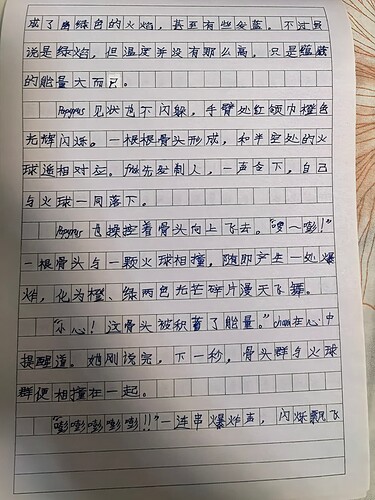 成了幽绿色的火焰，甚至有些发蓝。不过虽
说是绿焰，但温度并没有那么高，只是蕴藏
的能量大而已。
Papyrus见状也不闪躲，手臂处红领巾橙色
光辉闪烁。一根根骨头形成，和半空处的火
球遥相对应。先发制人，一声令下，自己
与火球一同落下。
Papyrus也操控着骨头向上飞去。“噗～嘭！”
一根骨头与一颗火球相撞，随即产生一处爆
炸，化为橙、绿两色光芒碎片漫天飞舞。
“小心！这骨头被积蓄了能量。”chara在心中
提醒道。她刚说完，下一秒，骨头群与火球
群便相撞在一起。
“嘭嘭嘭嘭嘭！！”一连串爆炸声，闪烁飘飞